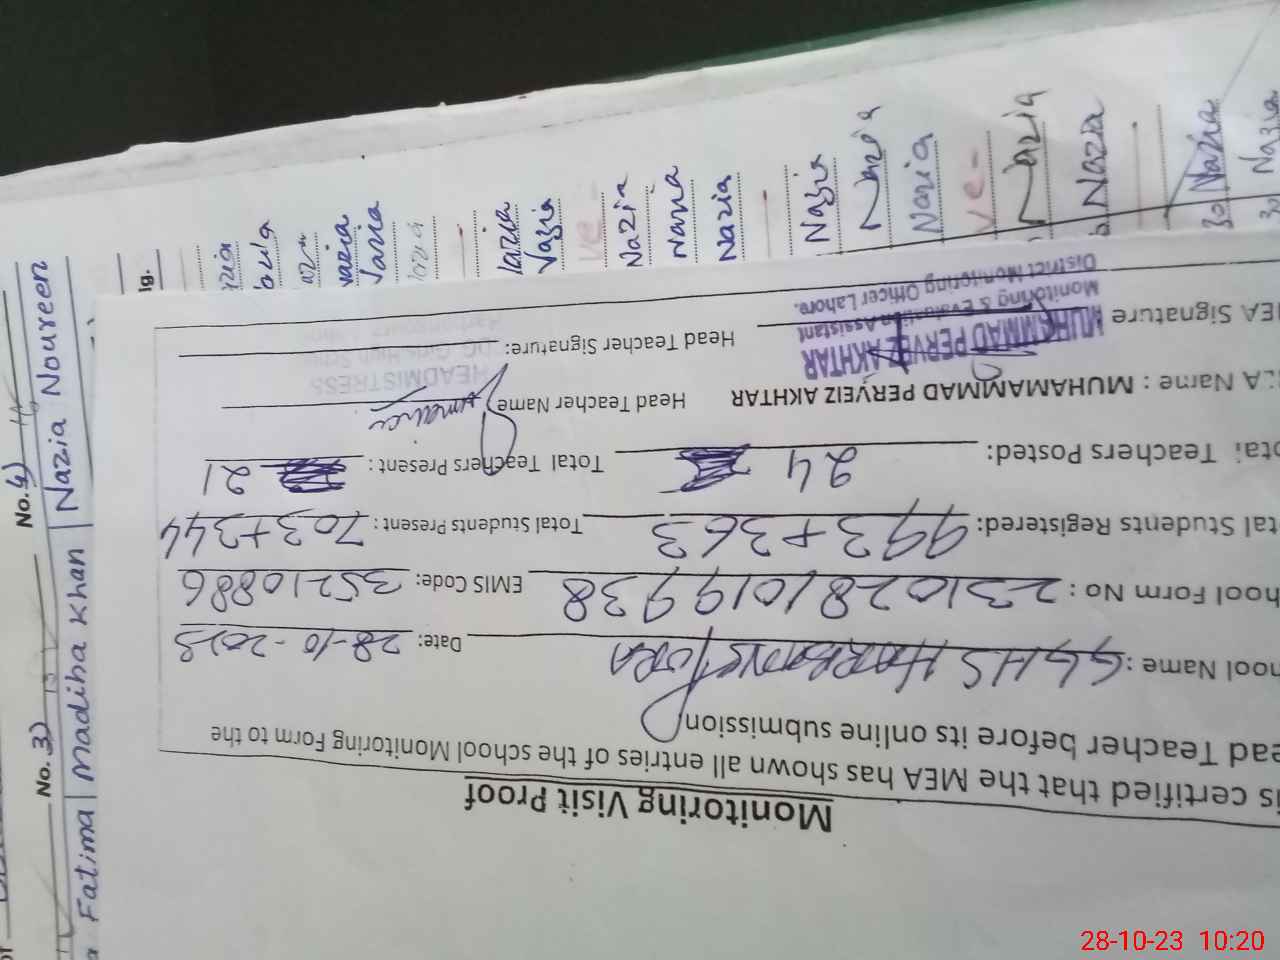 Monitoring Visit Proof
is certified that the MEA has shown all entries of the school Monitoring Form to the
ead Teacher before its online submission
hool Name : GGHS HARBANSPURA Date: 28-10-2023
hool Form No : 2310281019938 EMIS Code: 35210886
tal Students Registered: 993+363 Total Students Present : 703+344
otal Teachers Posted: 24 Total Teachers Present : 21
EA Name : MUHAMMAD PERVEIZ AKHTAR Head Teacher Name
EA Signature Head Teacher Signature:
MUHAMMAD PERVEIZ AKHTAR
Monitoring & Evaluation Assistant
District Monitoring Officer Lahore.
HEADMISTRESS
No. 3) No. 4)
Fatima Madiha Khan Nazia Noureen
Ig.
Nazia
Nazia
Nazia
Nazia
Nazia
Nazia
ve-
Nazia
Nazia
30 Nazia
30 Nazia
28-10-23 10:20